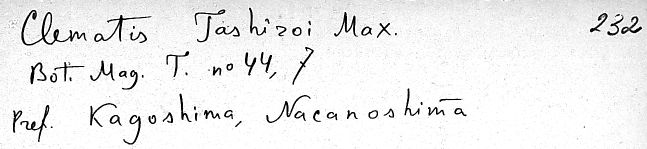 Clematis Tashiroi Max. 232
Bot. Mag. T. no 44, 7
Pref. Kagoshima, Nacanoshima